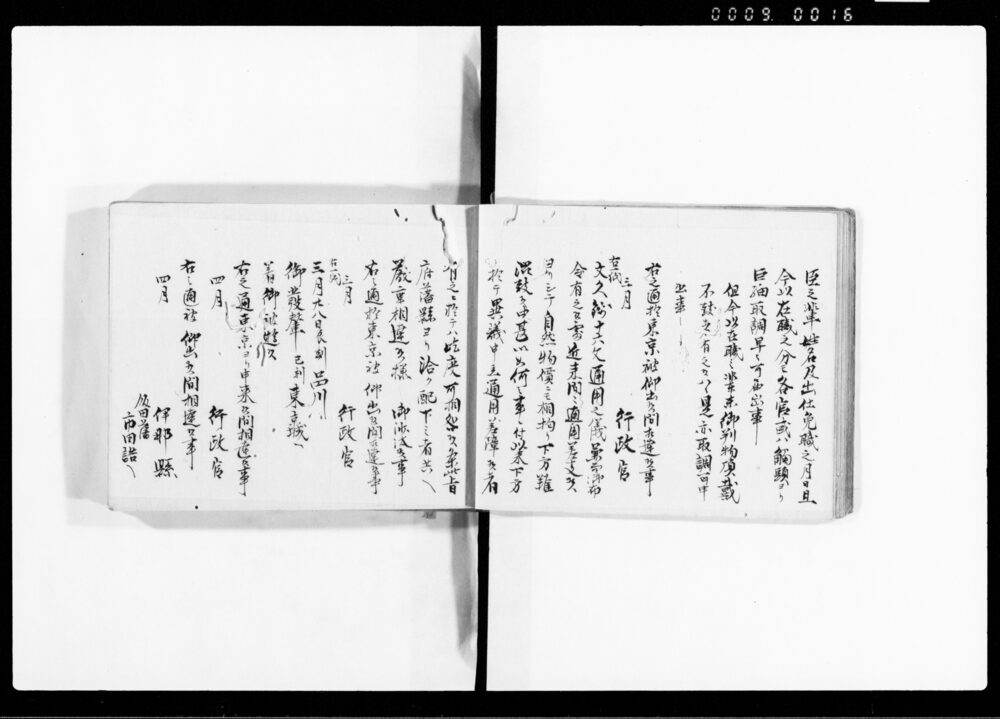 0009. 0016
臣之輩姓名及出仕免職之月日且
今以在職之分ハ各官或ハ觸頭ヨリ
巨細取調早々可届出事
但今以在職之輩末御判物頂戴
不致者有之候ハヽ是亦取調可申
出事
右之通於東京被 仰出候間相達候事
三月 行政官
右同
文久錢十六文通用之儀兼而御布
令有之候處近来間々通用差支候
ヨリシテ自然物價ニモ相拘リ下方難
澁致候由甚以如何之事ニ付以来下方
於テ異議申立通用差障候者
有之ニ於テハ屹度可相糺候条此旨
府藩縣ヨリ洽ク配下之者共ヘ
嚴重相達候様 御沙汰候事
右之通於東京被 仰出候間相達候事
三月 行政官
右同
三月廿八日辰刻品川
御發輦巳刻東京城ヘ
着御被遊候
右之通東京ヨリ申来候間相達候事
四月 行政官
右之通被 仰出候間相達候事
四月 伊那縣
飯田藩
市田詰ヘ